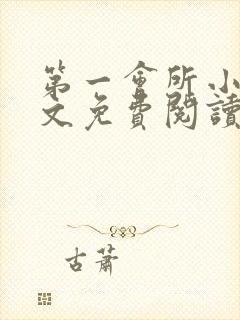 第一會所小
文免費閱讀
古蕭